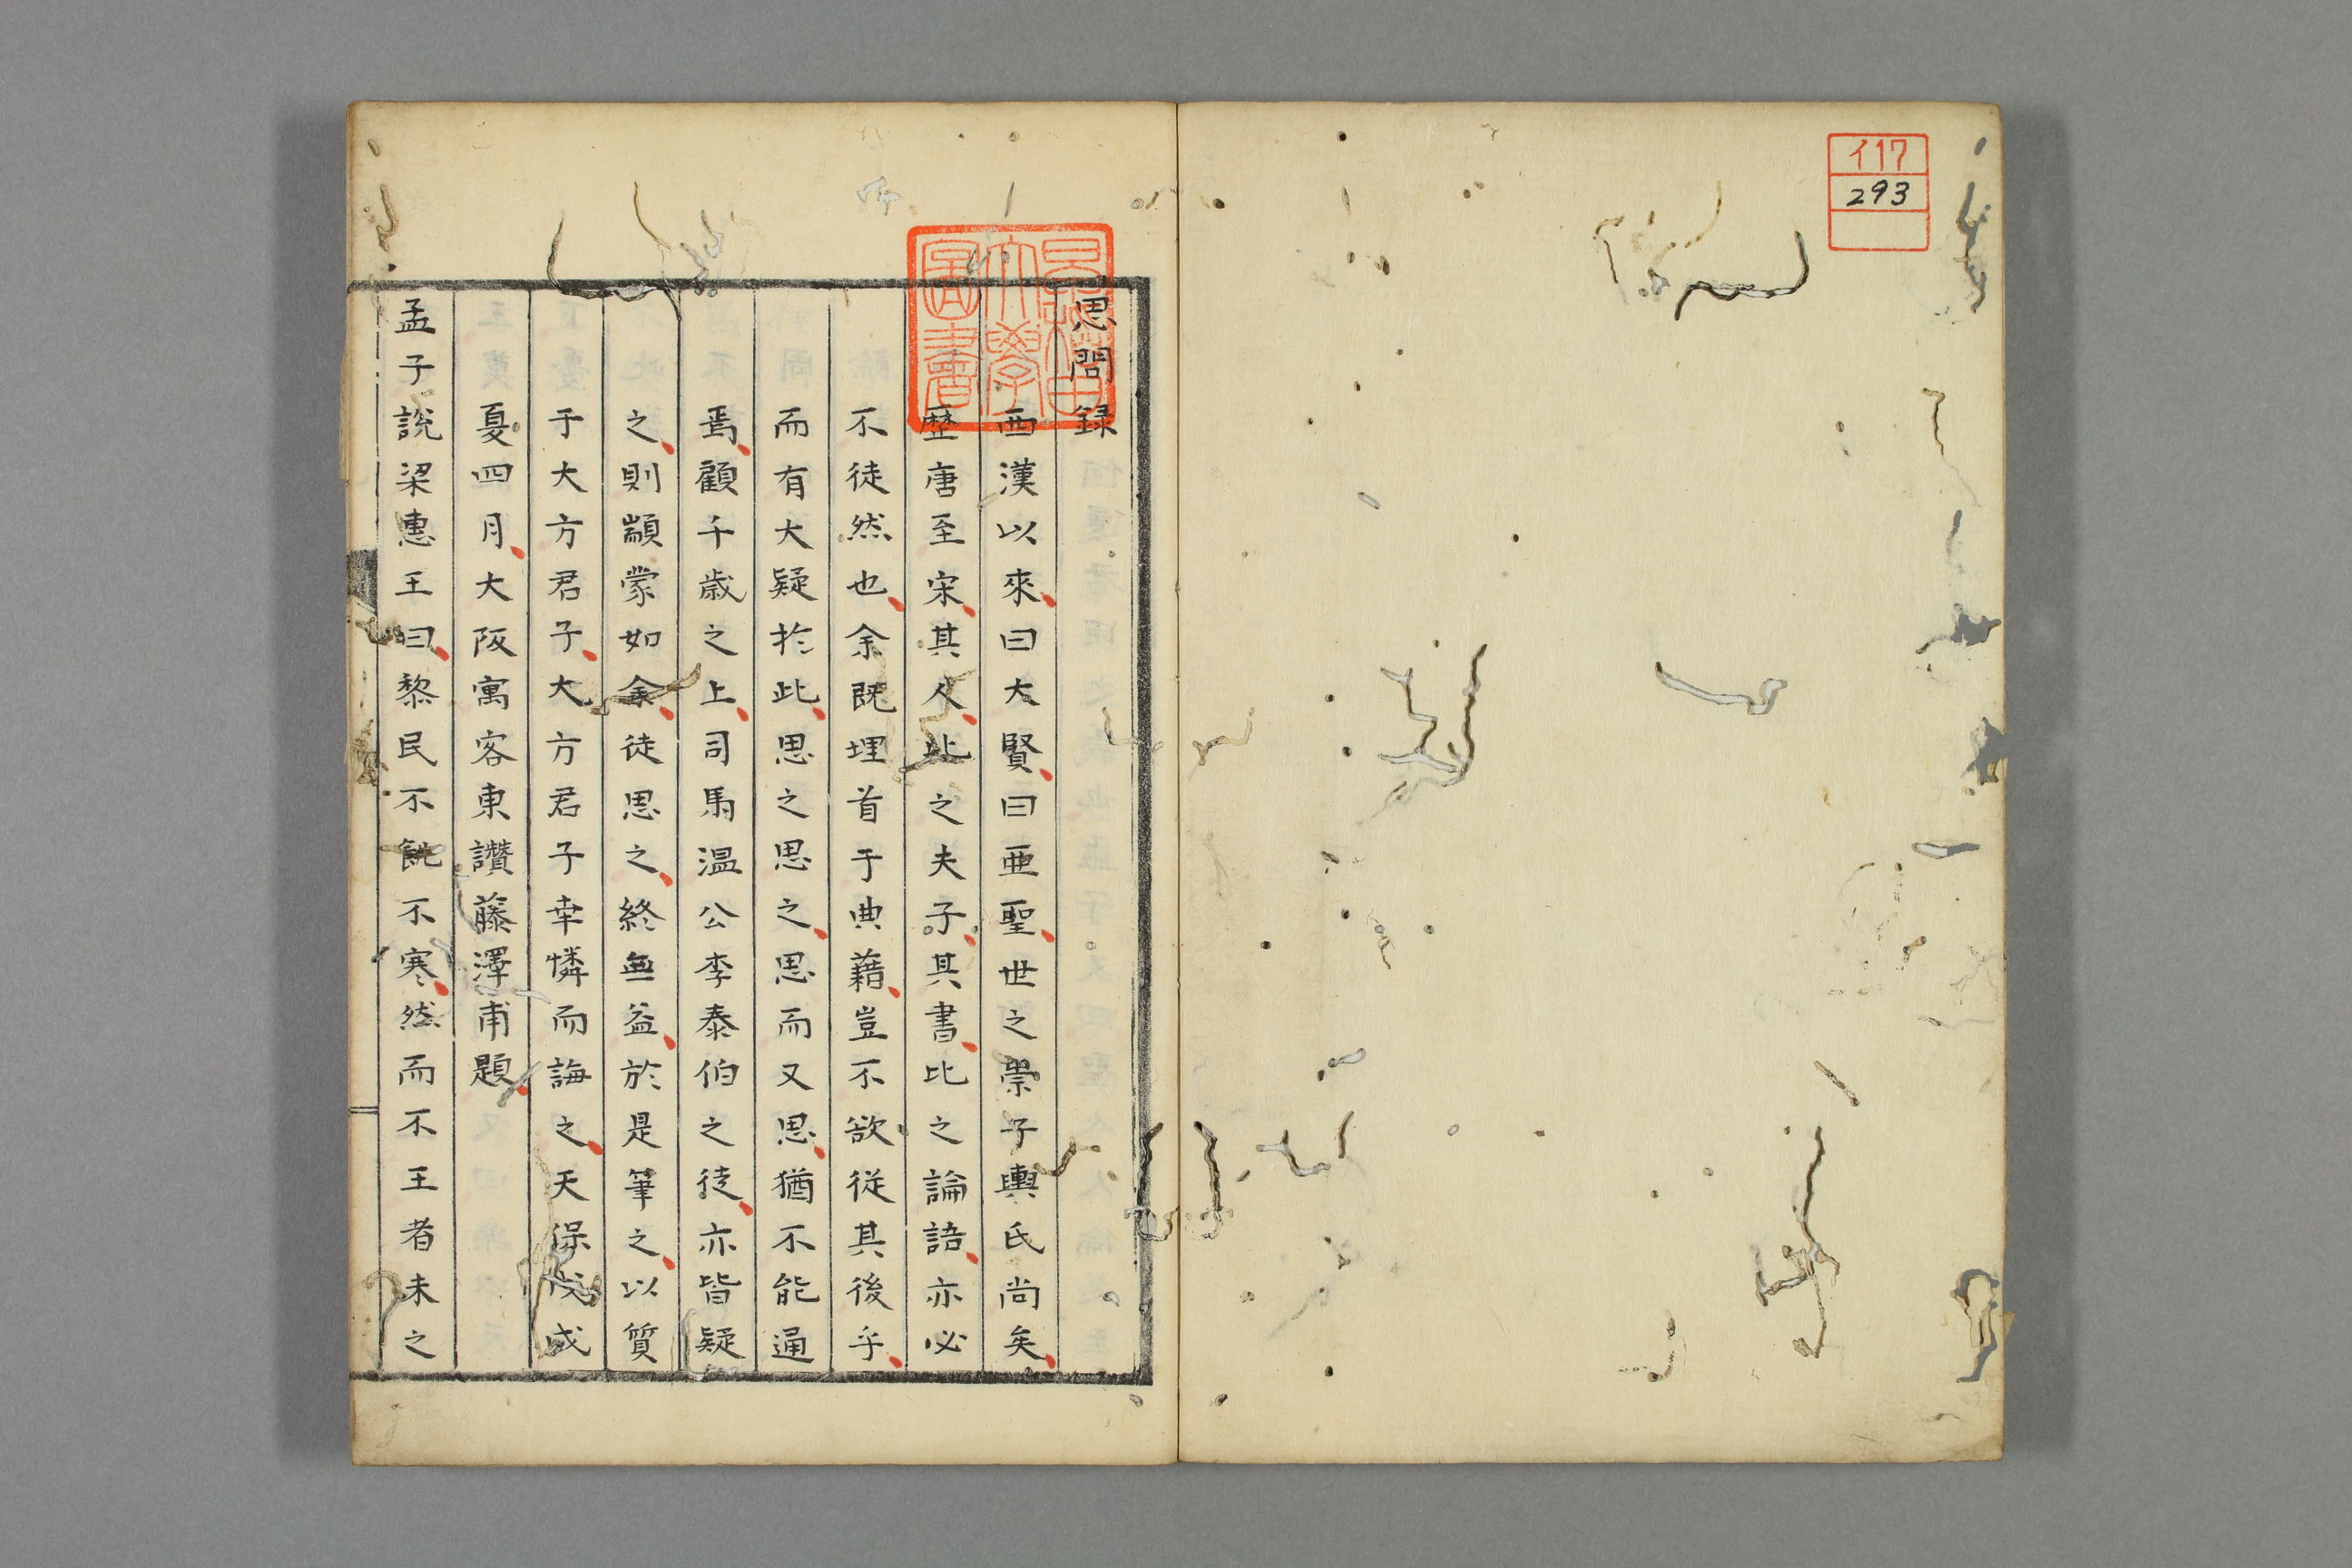 イ17
293
早稲田大學圖書
思問録
西漢以來、曰大賢、曰亜聖、世之崇子輿氏尚矣、
歴唐至宋、其人、比之夫子、其書、比之論語、亦必
不徒然也、余既埋首于典藉、豈不欲従其後乎、
而有大疑於此、思之思之、思而又思、猶不能通
焉、顧千歳之上、司馬温公李泰伯之徒、亦皆疑
之、則顓蒙如余、徒思之、終無益、於是筆之、以質
于大方君子、大方君子幸憐而誨之、天保戊戌
夏四月、大阪寓客東讃藤澤甫題、
孟子説梁惠王曰、黎民不飢不寒、然而不王者未之